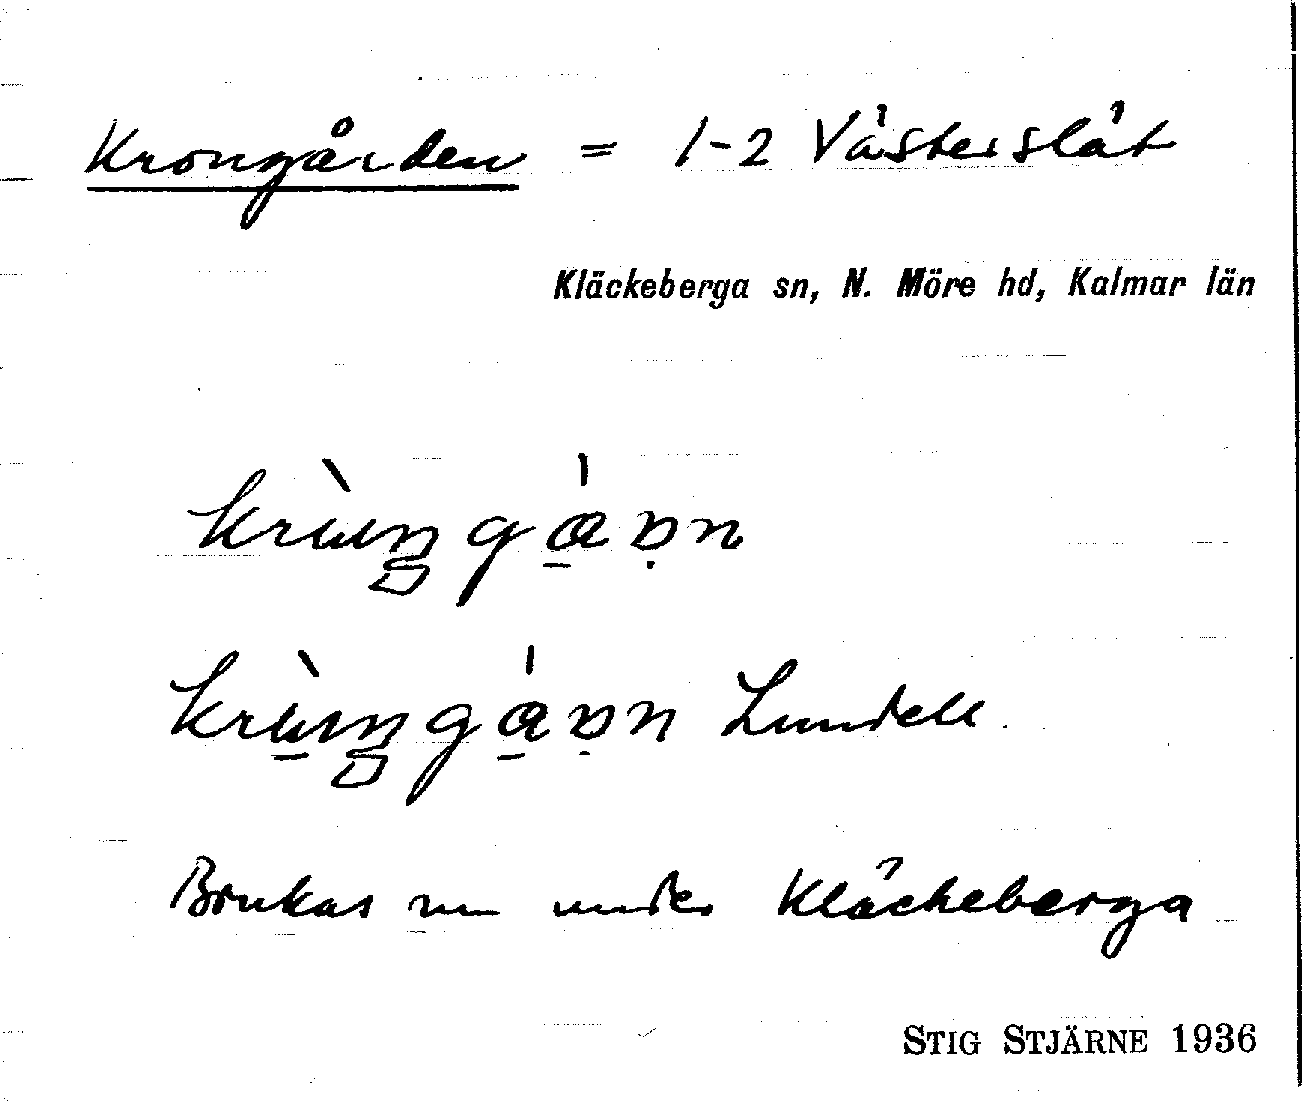 Krongården = 1-2 Västerslät
Kläckeberga sn, N. Möre hd, Kalmar län
Lundell
Brukas nu under Kläckeberga
STIG STJÄRNE 1936